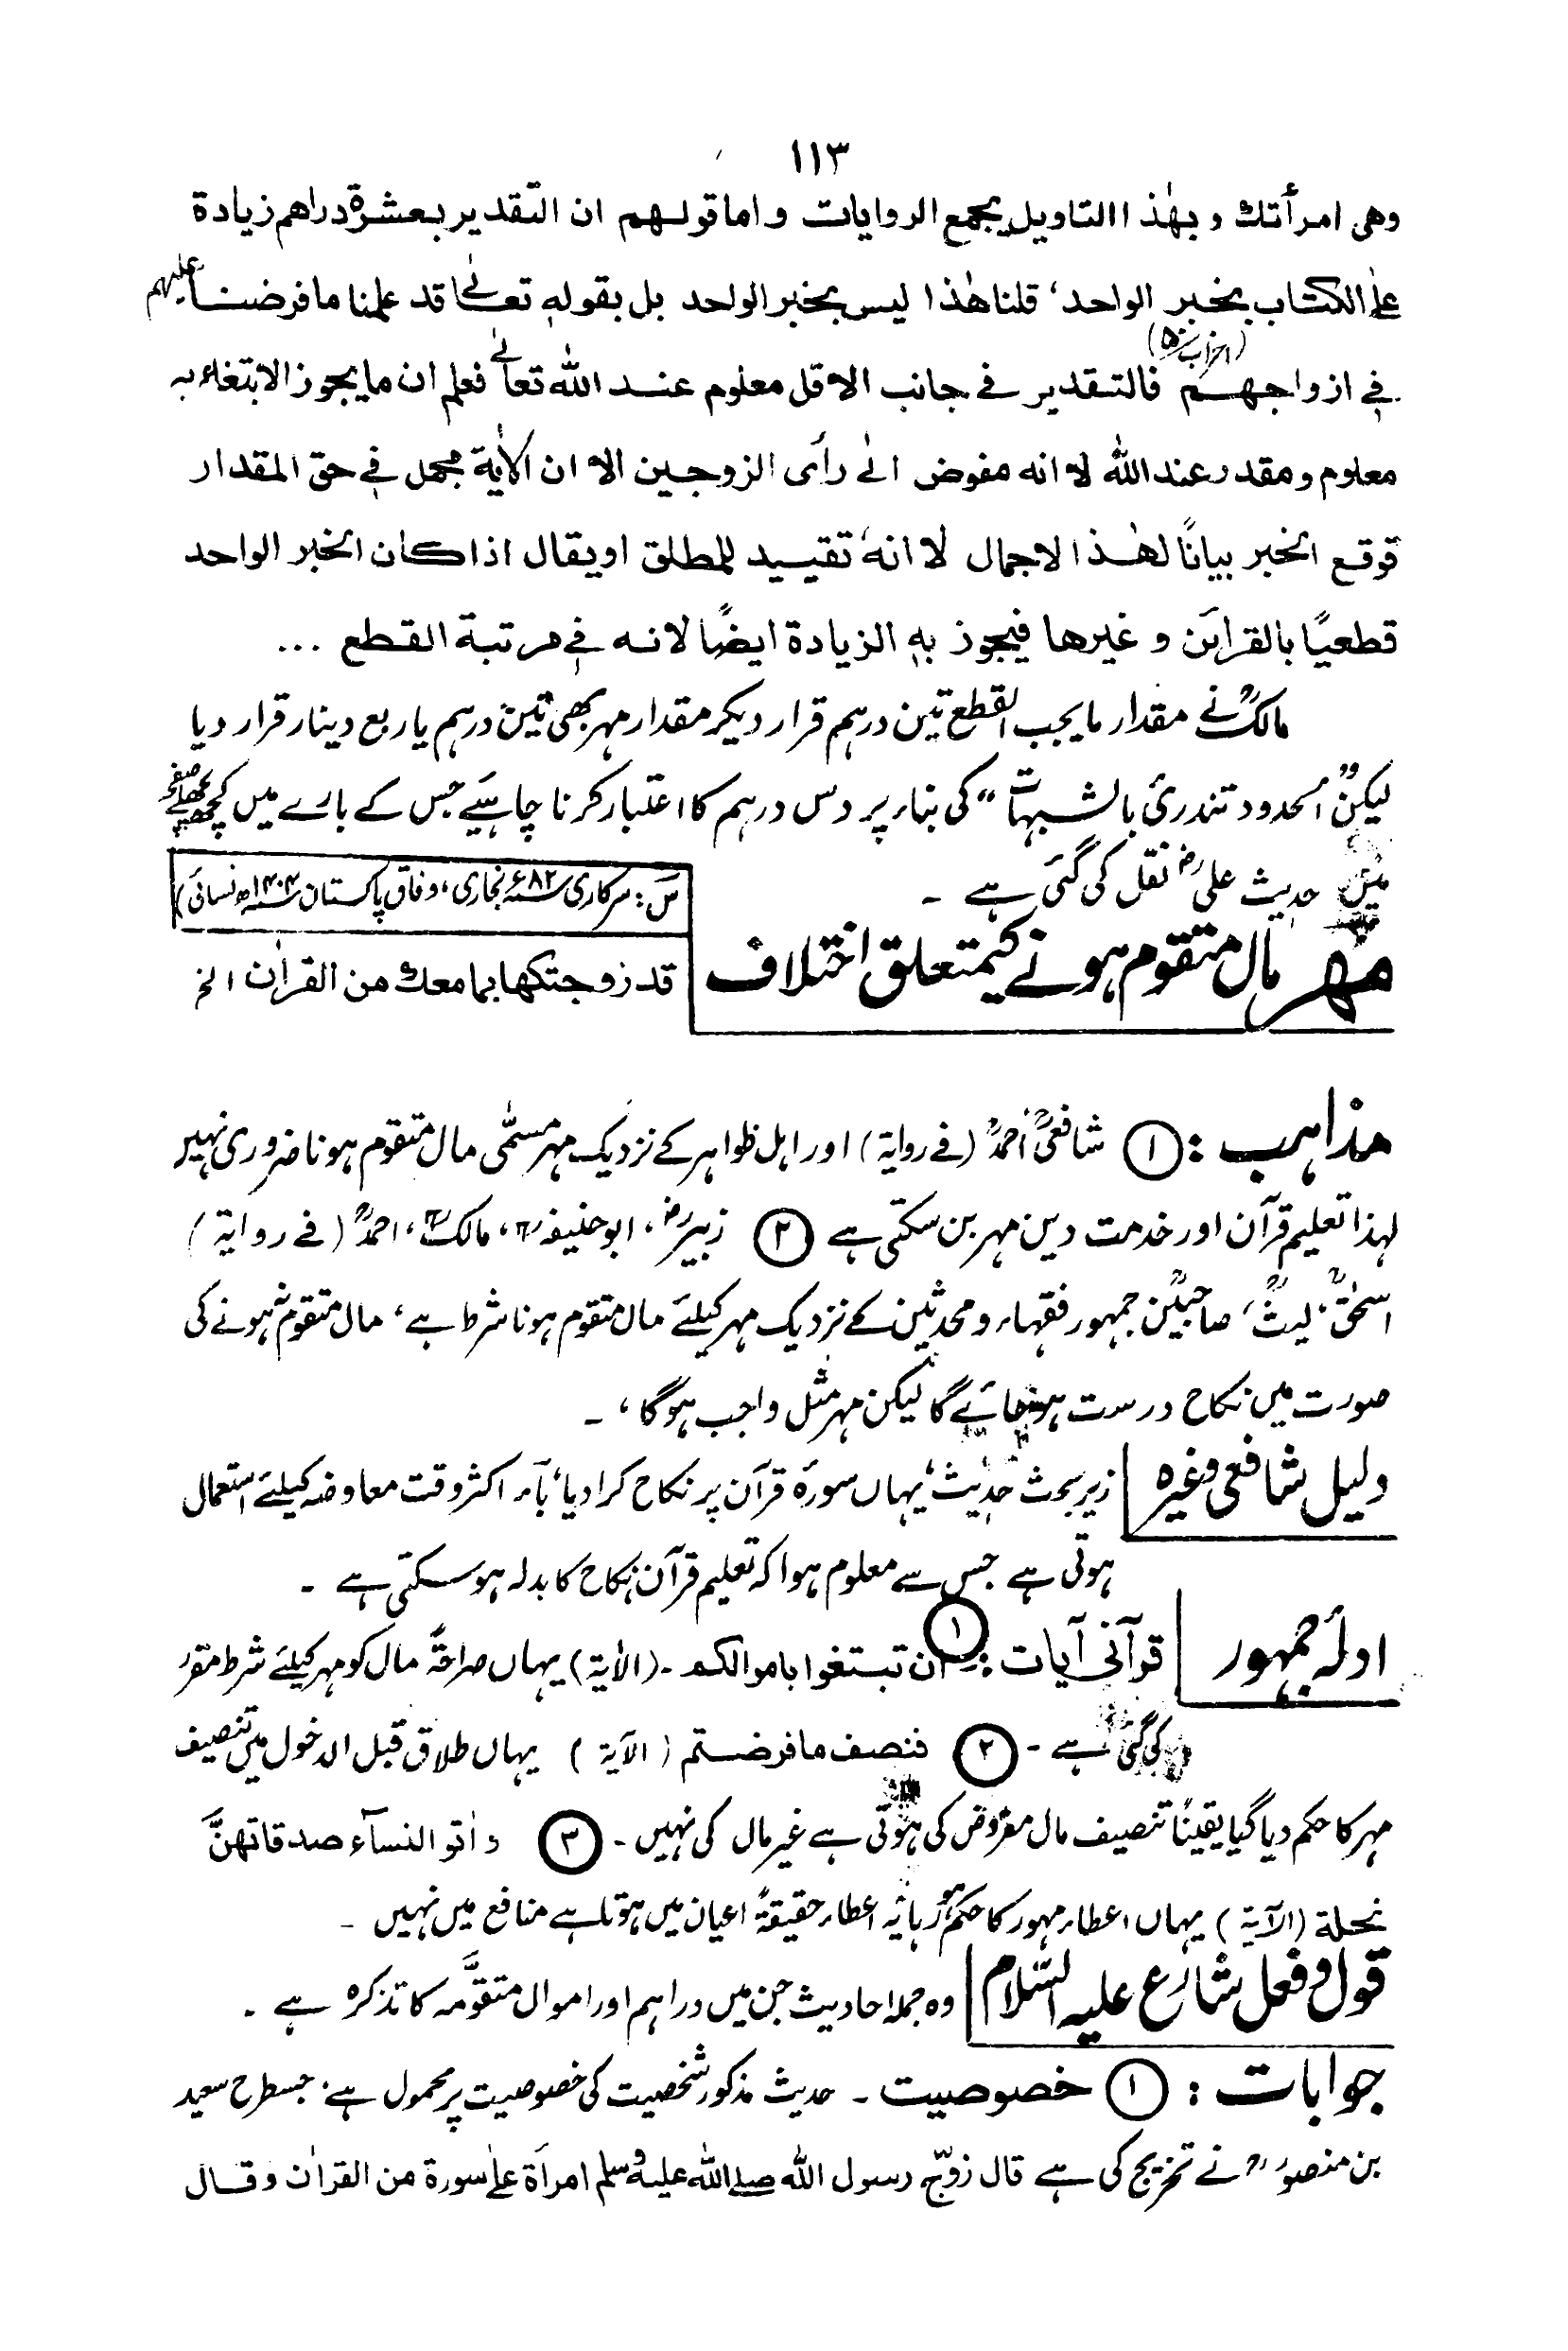 ۱۱۳
وهی امرأتك وبهٰذا التاویل یجمع الروایات واما قولهم ان التقدیر بعشرة دراهم زیادة
علی الکتاب بخبر الواحد، قلنا هٰذا لیس بخبر الواحد بل بقولہٖ تعالٰی قد علمنا ما فرضنا علیهم
فی ازواجهم (احزاب ۵۰) فالتقدیر فی جانب الاقل معلوم عند الله تعالٰی فعلم ان ما یجوز الابتغاء به
معلوم ومقدر عند الله لا انه مفوض الٰی رأی الزوجین الا ان الآیة مجمل فی حق المقدار
فوقع الخبر بیانًا لهٰذا الاجمال لا انهٗ تقیید للمطلق او یقال اذا کان الخبر الواحد
قطعیًا بالقرائن وغیرها فیجوز بهٖ الزیادة ایضًا لانه فی مرتبة القطع ...
مالکؒ نے مقدار ما یجب القطع تین درہم قرار دیکر مقدار مہر بھی تین درہم یا ربع دینار قرار دیا
لیکن ”الحدود تندرئ بالشبہات“ کی بناء پر دس درہم کا اعتبار کرنا چاہیے جس کے بارے میں کچھ پچھلے صفحہ
میں حدیث علیؓ نقل کی گئی ہے ۔
س: سرکاری ۸۲ء بخاری، وفاق پاکستان ۱۴۰۴ھ نسائی)
مہر مال متقوم ہونے کیمتعلق اختلاف
قد زوجتکها بما معك من القراٰن الخ
مذاہب : ① شافعیؒ احمدؒ (فی روایة) اور اہل ظواہر کے نزدیک مہر مسمّٰی مال متقوم ہونا ضروری نہیں
لہذا تعلیم قرآن اور خدمت دین مہر بن سکتی ہے ② زبیرؓ، ابو حنیفہؒ، مالکؒ، احمدؒ (فی روایة)
اسحٰقؒ، لیثؒ، صاحبینؒ جمہور فقہاء و محدثین کے نزدیک مہر کیلئے مال متقوم ہونا شرط ہے، مال متقوم نہ ہونے کی
صورت میں نکاح درست ہو جائے گا لیکن مہر مثل واجب ہوگا، ۔
دلیل شافعی وغیرہ
زیر بحث حدیث، یہاں سورۂ قرآن پر نکاح کرا دیا، بآء اکثر وقت معاوضہ کیلئے استعمال
ہوتی ہے جس سے معلوم ہوا کہ تعلیم قرآن نکاح کا بدلہ ہو سکتی ہے ۔
ادلۂ جمہور
قرآنی آیات : ① ان تبتغوا باموالکم ۔ (الاٰیة) یہاں صراحةً مال کو مہر کیلئے شرط مقرر
کی گئی ہے ۔ ② فنصف ما فرضتم (الآیة) یہاں طلاق قبل الدخول میں تنصیف
مہر کا حکم دیا گیا یقینًا تنصیف مال مفروض کی ہوتی ہے غیر مال کی نہیں ۔ ③ واٰتو النسآء صدقاتهنَّ
نحلة (الآیة) یہاں اعطاء مہور کا حکم ہو رہا ہے اعطاء حقیقةً اعیان میں ہوتا ہے منافع میں نہیں ۔
قول و فعل شارع علیہ السّلام
وہ جملہ احادیث جن میں دراہم اور اموال متقوّمہ کا تذکرہ ہے ۔
جوابات : ① خصوصیت ۔ حدیث مذکور شخصیت کی خصوصیت پر محمول ہے، جسطرح سعید
بن منصورؒ نے تخریج کی ہے قال زوّج رسول الله صلی الله علیه وسلم امرأة علٰی سورة من القراٰن وقال